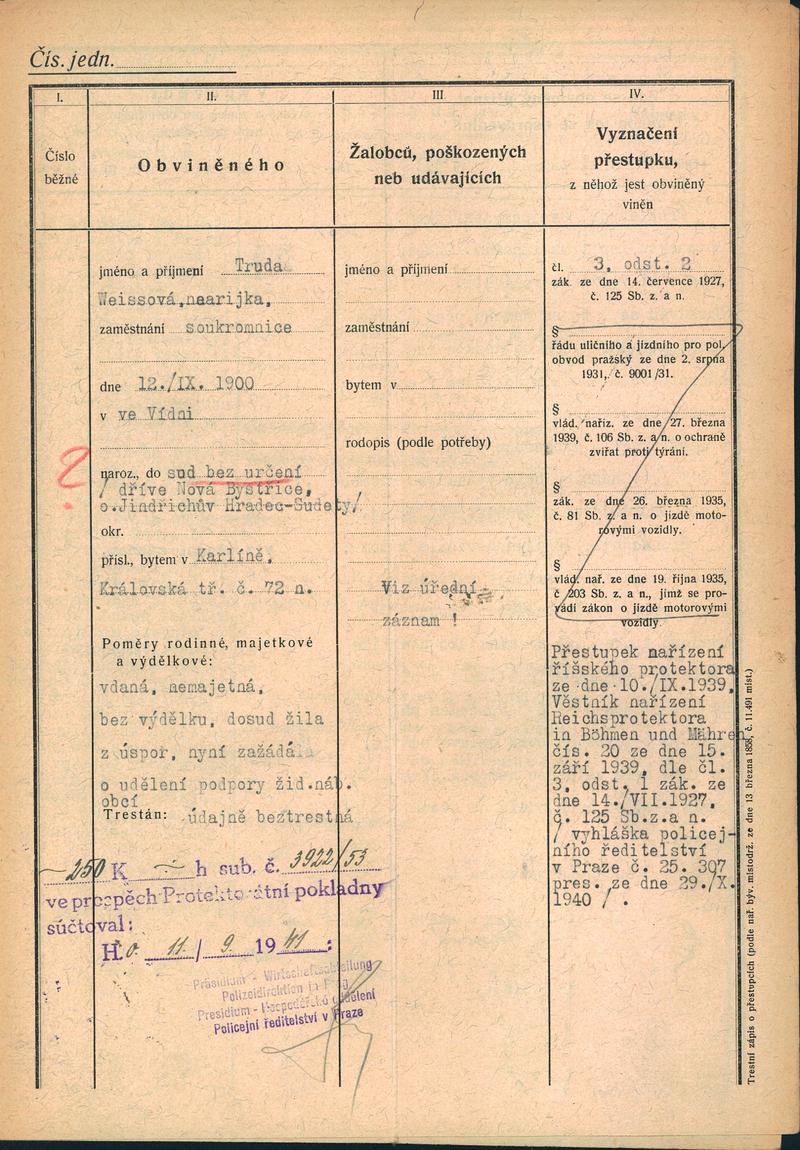 Čís. jedn.
I.
Číslo
běžné
II.
Obviněného
jméno a příjmení Truda
Weissová, naarijka,
zaměstnání soukromnice
dne 12./IX. 1900
v ve Vídni
naroz., do sud bez určení
/ dříve Nová Bystřice,
o.Jindřichův Hradec-Sudety/
okr.
přísl., bytem v Karlíně,
Královská tř. č. 72 n.
Poměry rodinné, majetkové
a výdělkové:
vdaná, nemajetná,
bez výdělku, dosud žila
z úspor, nyní zažádála
o udělení podpory žid.náb.
obcí
Trestán: údajně beztrestná
250 K — h sub. č. 3922/53
ve prospěch Protektorátní pokladny
súčtoval:
11/9. 1941 :
Präsidium - Wirtschaftsabteilung
Polizeidirektion in Prag
Presidium - Hospodářské oddělení
Policejní ředitelství v Praze
III.
Žalobců, poškozených
neb udávajících
jméno a příjmení
zaměstnání
bytem v
rodopis (podle potřeby)
Viz úřední
záznam !
IV.
Vyznačení
přestupku,
z něhož jest obviněný
viněn
čl. 3, odst. 2
zák. ze dne 14. července 1927,
č. 125 Sb. z. a n.
§
řádu uličního a jízdního pro pol.
obvod pražský ze dne 2. srpna
1931, č. 9001/31.
§
vlád. nařiz. ze dne 27. března
1939, č. 106 Sb. z. a n. o ochraně
zvířat proti týrání.
§
zák. ze dne 26. března 1935,
č. 81 Sb. z. a n. o jízdě moto-
rovými vozidly.
§
vlád. nař. ze dne 19. října 1935,
č 203 Sb. z. a n., jímž se pro-
vádí zákon o jízdě motorovými
vozidly.
Přestupek nařízení
říšského protektora
ze dne 10./IX.1939,
Věstník nařízení
Reichsprotektora
in Böhmen und Mähren
čís. 20 ze dne 15.
září 1939, dle čl.
3, odst. 1 zák. ze
dne 14./VII.1927,
č. 125 Sb.z.a n.
/ vyhláška policej-
ního ředitelství
v Praze č. 25. 307
pres. ze dne 29./X.
1940 / .
Trestní zápis o přestupcích (podle nař. býv. místodrž. ze dne 13 března 1858, č. 11.491 míst.)